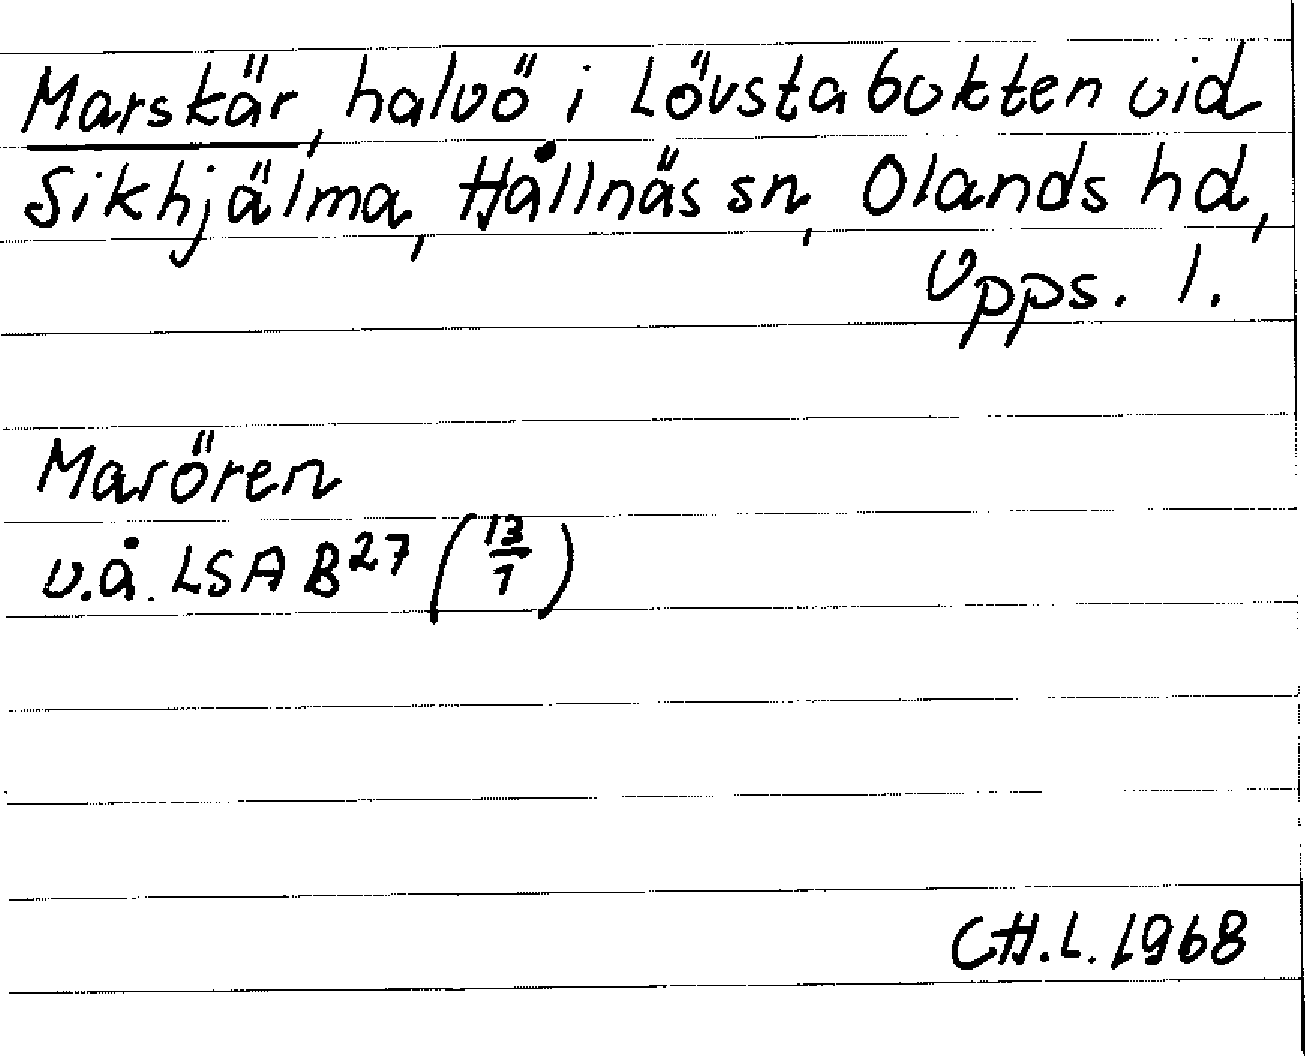 Marskär, halvö i Lövstabukten vid
Sikhjälma, Hållnäs sn, Olands hd,
Upps. l.
Marören
u.å. LSA B27 (13/1)
CH.L. 1968